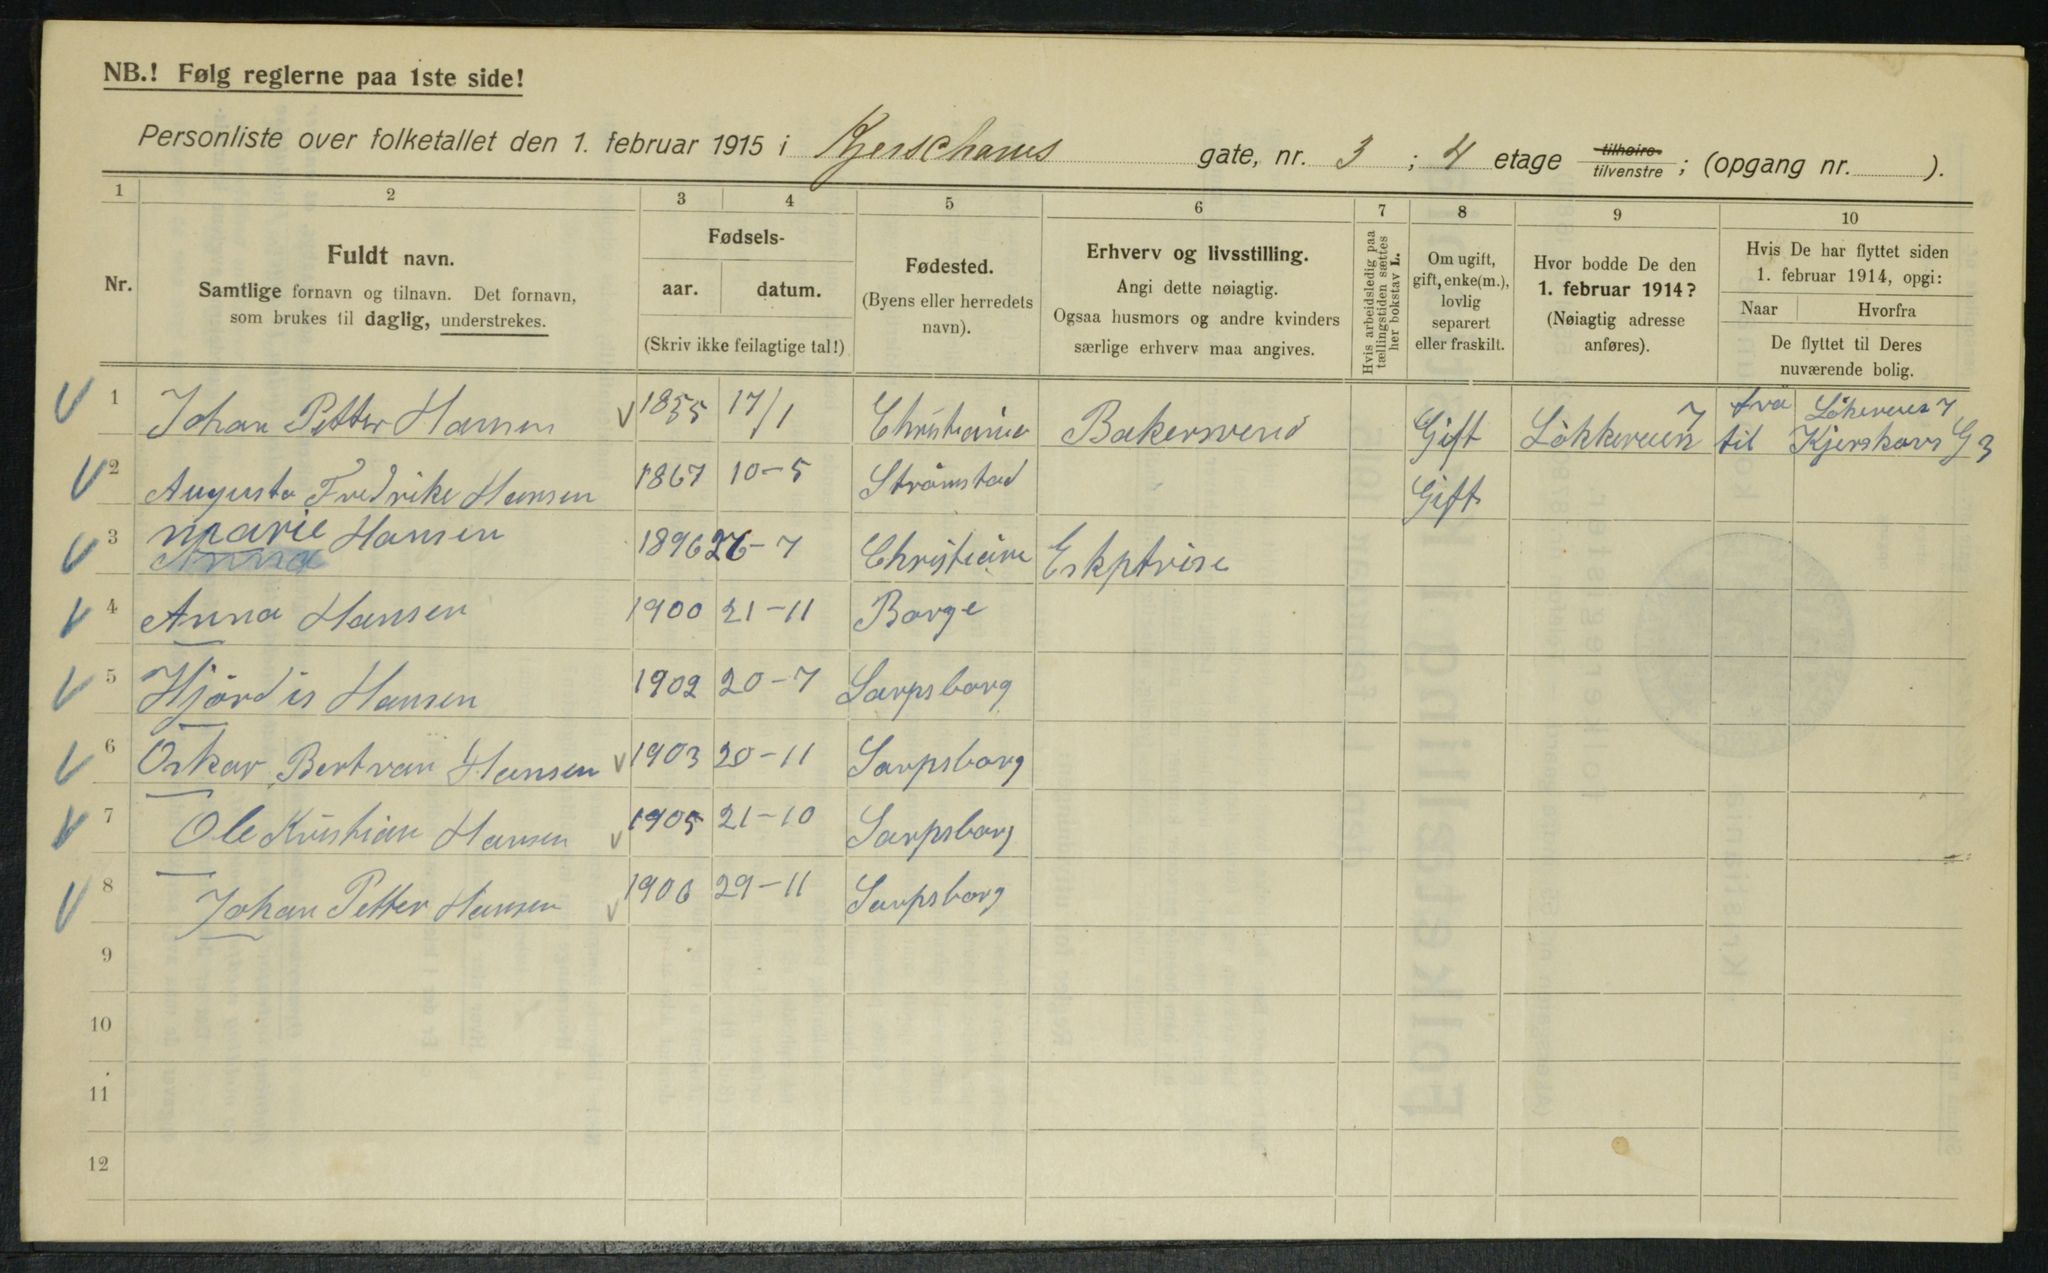 NB.! Følg reglerne paa 1ste side!
Personliste over folketallet den 1. februar 1915 i Kjerschows gate, nr. 3 ; 4 etage tilhøire tilvenstre ; (opgang nr. ).
1 2 3 4 5 6 7 8 9 10
Nr.
Fuldt navn.
Samtlige fornavn og tilnavn. Det fornavn,
som brukes til daglig, understrekes.
Fødsels-
aar. datum.
(Skriv ikke feilagtige tal!)
Fødested.
(Byens eller herredets
navn).
Erhverv og livsstilling.
Angi dette nøiagtig.
Ogsaa husmors og andre kvinders
særlige erhverv maa angives.
Hvis arbeidsledig paa
tællingstiden sættes
her bokstav L.
Om ugift,
gift, enke(m.),
lovlig
separert
eller fraskilt.
Hvor bodde De den
1. februar 1914?
(Nøiagtig adresse
anføres).
Hvis De har flyttet siden
1. februar 1914, opgi:
Naar Hvorfra
De flyttet til Deres
nuværende bolig.
1 Johan Petter Hansen 1855 17/1 Christiania Bakersvend Gift Lökkeveien 7 fra Lökeveies 7
til Kjerskovs G 3
2 Augusta Fredrike Hansen 1867 10-5 Strömstad Gift
3 Marie Hansen 1896 26-7 Christiania Eskptrise
Anna
4 Anna Hansen 1900 21-11 Borge
5 Hjördis Hansen 1902 20-7 Sarpsborg
6 Oskar Bertran Hansen 1903 20-11 Sarpsborg
7 Ole Kristian Hansen 1905 21-10 Sarpsborg
8 Johan Petter Hansen 1906 29-11 Sarpsborg
9
10
11
12